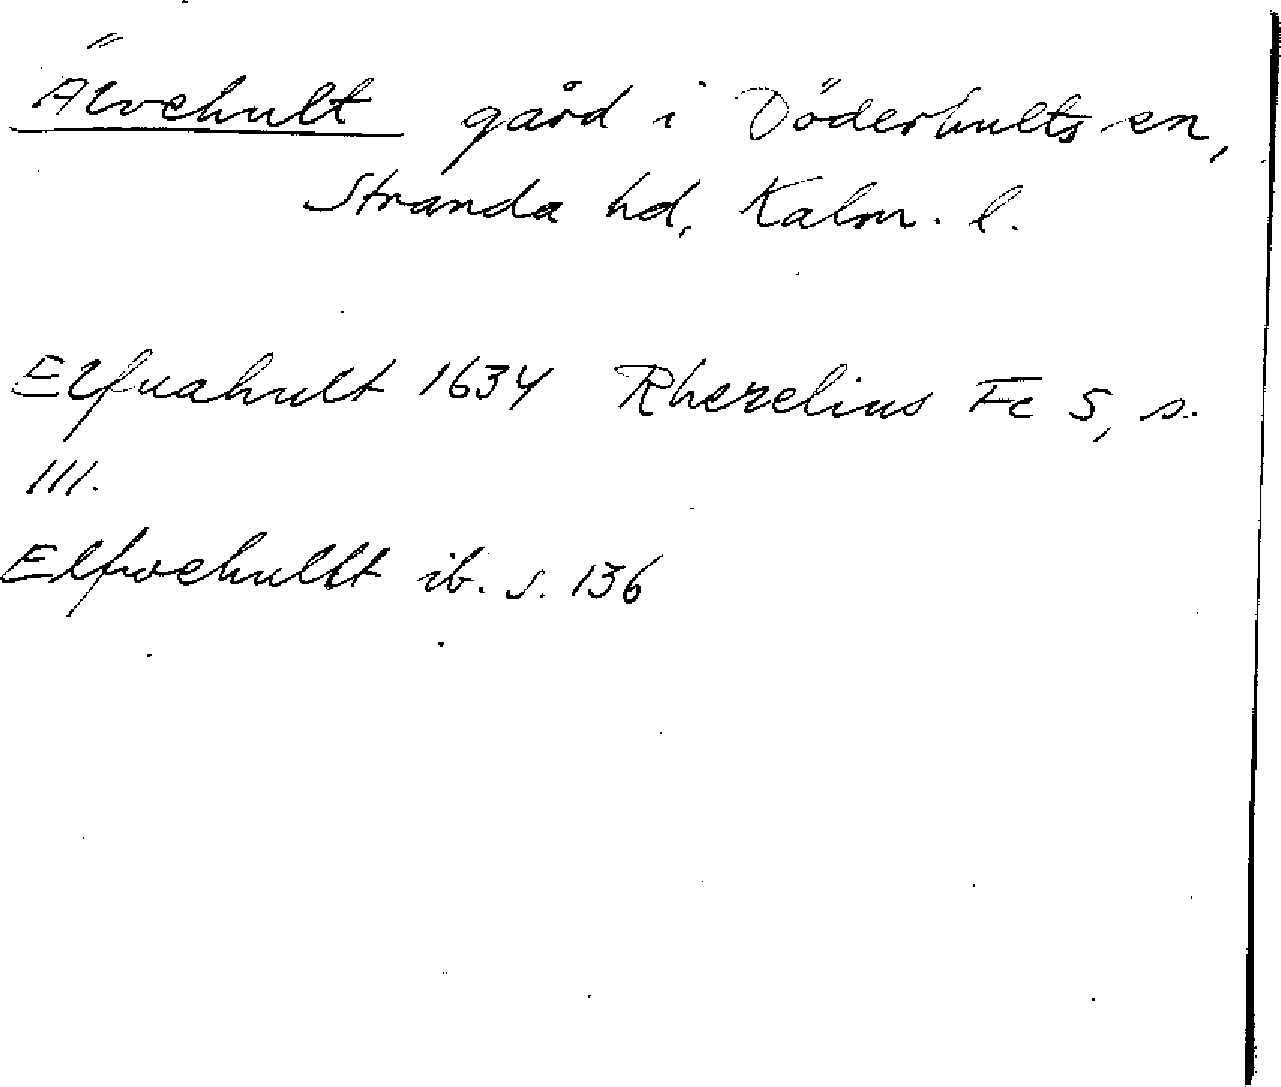 Älvehult gård i Döderhults sn,
Stranda hd, Kalm. l.
Elfuahult 1634 Rhezelius Fc 5, s.
111.
Elfwehullt ib. s. 136